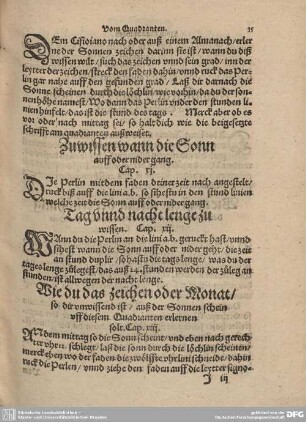 Vom Quadranten. 35
DEm Cisioiano nach oder auß einem Almanach/erler
ne der Sonnen zeichen darinn sie ist/wann du diß
wissen wilt/such das zeichen vnnd sein grad/inn der
leytter der zeichen/streck den faden dahin/vnnd ruck das Per-
lin gar nahe auff den gefunden grad/Laß dir darnach die
Sonne scheinen durch die löchlin wie vorhin/da du der son-
nenhöhe namest/Wo dann das Perlin vnder den stunden li
nien hinfelt/das ist die stund des tags. Merck aber ob es
vor oder nach mittag sei/so halt dich wie die beigesetzte
schrifft am quadranten außweiset.
Zu wissen wann die Sonn
auff oder nider gang.
Cap. xj.
DJe Perlin mit dem faden deiner zeit nach angestelt/
ruck biß auff die lini a.b. so sihestu in den stund linien
welche zeit die Sonn auff oder nider gang.
Tag vnnd nacht lenge zu
wissen. Cap. xij.
WAnn du die Perlin an die lini a.b. geruckt hast/vnnd
sihest wann die Sonn auff oder nider geht/die zeit
an stund duplir/so hastu die tags lenge/was du der
tages lenge zůlegest/das auß 24. stunden werden der zůleg an
stunden/ist allwegen der nacht lenge.
Wie du das zeichen oder Monat/
so dir vnwissend ist/auß der Sonnen schein
vff disem Quadranten erlernen
solt. Cap. xiij.
AN dem mittag so die Sonn scheint/vnd eben nach gerech-
ter vhrn schlegt/laß die sonn durch die löchlin scheinen/
merck eben wo der faden die zwölffte vhrlini schneide/dahin
ruck die Perlen/vnnd ziehe den faden auff die leytter signo-
J iij